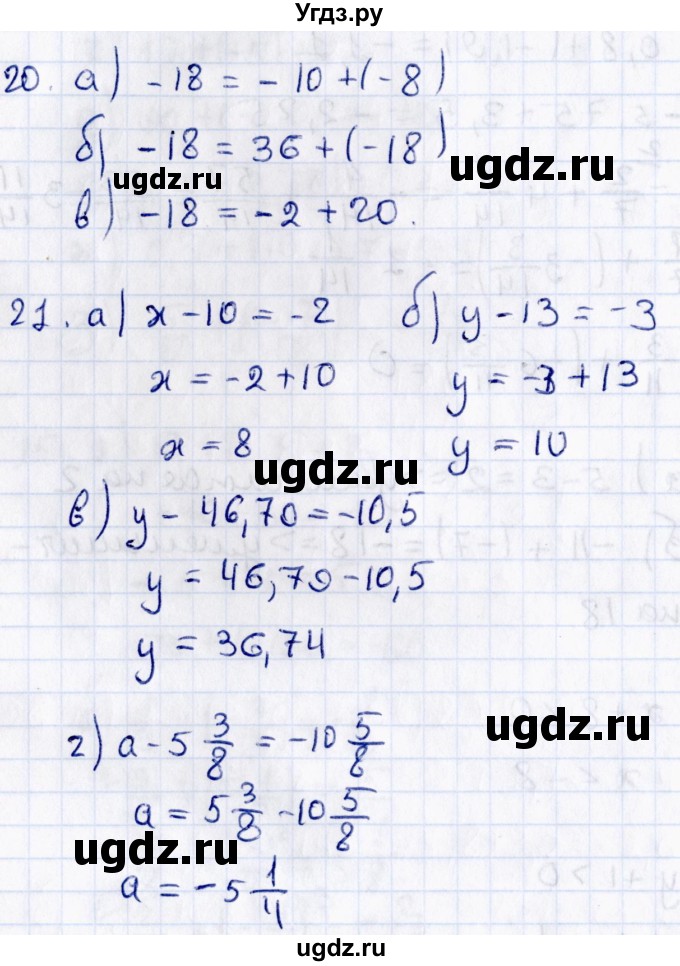 Угдз.ру
20. а) -18 = -10 + (-8)
б) -18 = 36 + (-18)
ugdz.ru
в) -18 = -2 + 20.
21. а) x - 10 = -2 б) y - 13 = -3
x = -2 + 10 y = -3 + 13
x = 8 y = 10
ugdz.ru
в) y - 46,70 = -10,5
y = 46,79 - 10,5
y = 36,74
ugdz.ru
г) a - 5 3/8 = -10 5/8
a = 5 3/8 - 10 5/8
ugdz.ru
a = -5 1/4
ugdz.ru